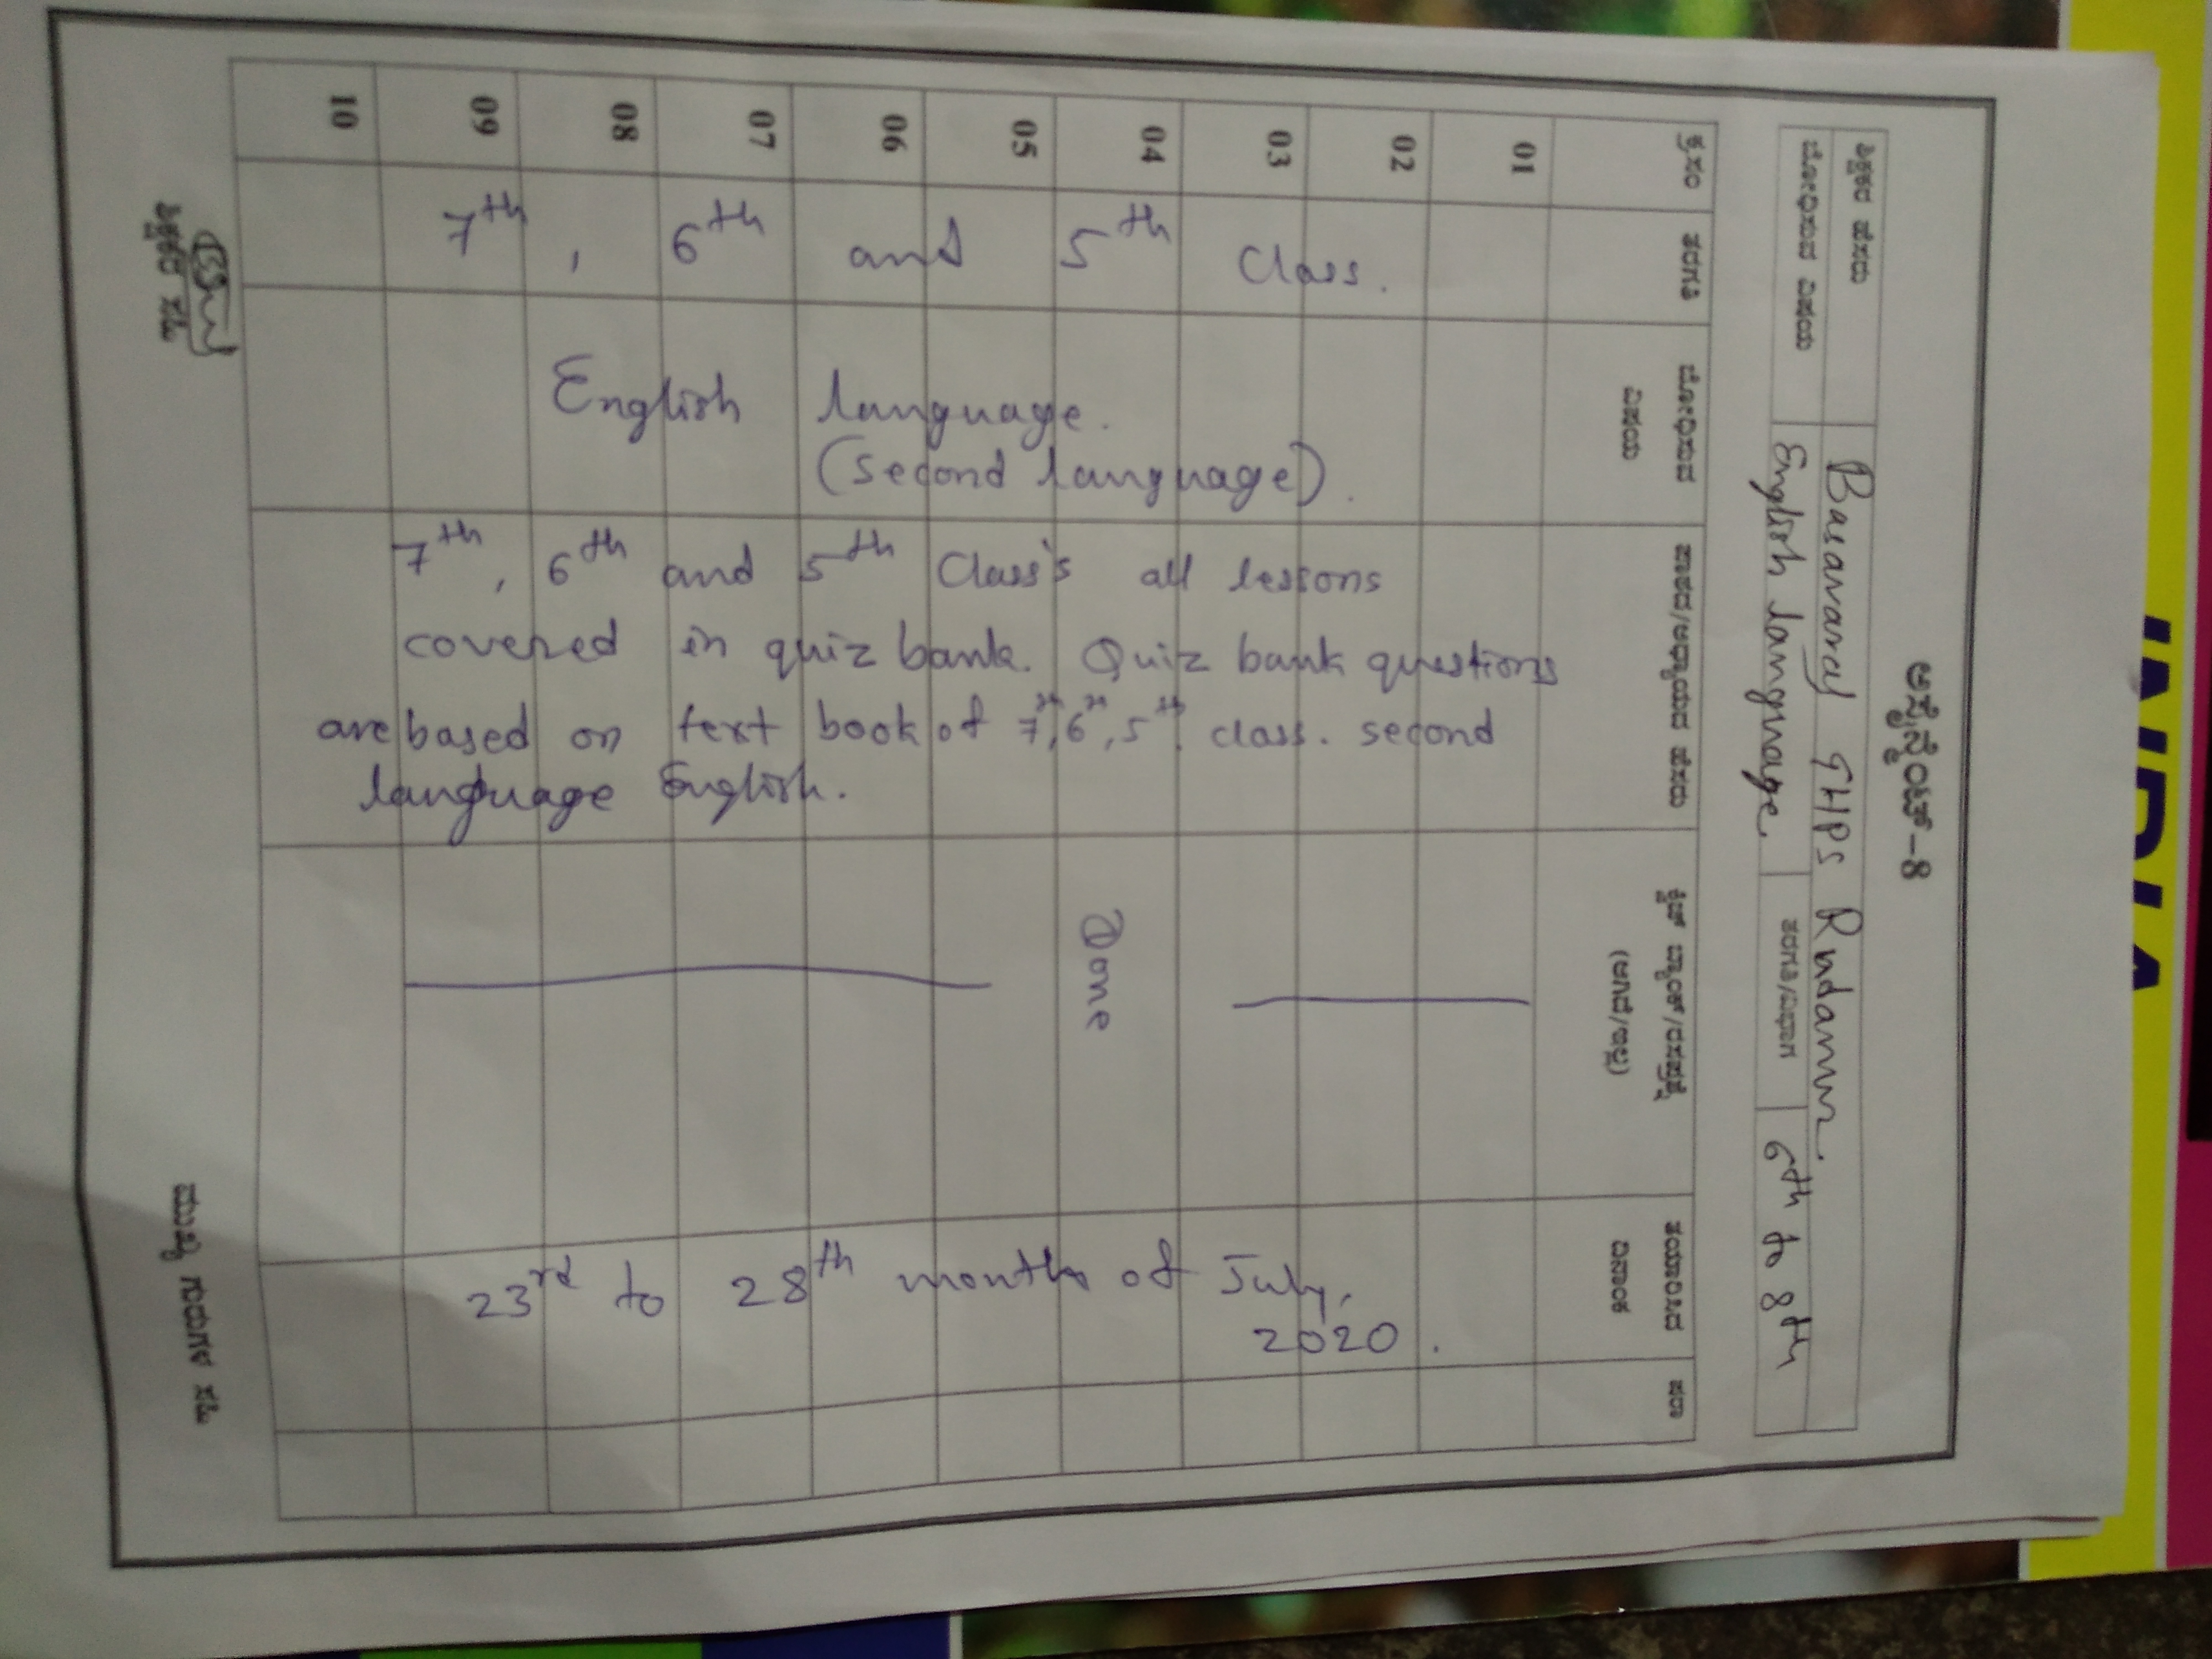 ಅಸೈನ್ಮೆಂಟ್-8
ಶಿಕ್ಷಕರ ಹೆಸರು Basavaraj GHPS Rudanur.
ಬೋಧಿಸುವ ವಿಷಯ English language. ತರಗತಿ/ವಿಭಾಗ 6th to 8th
ಕ್ರ.ಸಂ ತರಗತಿ ಬೋಧಿಸುವ ವಿಷಯ ಪಾಠದ/ಅಧ್ಯಾಯದ ಹೆಸರು ಕ್ವಿಜ್ ಬ್ಯಾಂಕ್/ರಸಪ್ರಶ್ನೆ (ಆಗಿದೆ/ಇಲ್ಲ) ತಯಾರಿಸಿದ ದಿನಾಂಕ ಷರಾ
01
02
03
04
05
06
07
08
09
10
7th, 6th and 5th Class.
English language.
(Second language).
7th, 6th and 5th Class's all lessons
covered in quiz bank. Quiz bank questions
are based on text book of 7th, 6th, 5th class. second
language English.
Done
23rd to 28th months of July,
2020.
ಶಿಕ್ಷಕರ ಸಹಿ
ಮುಖ್ಯ ಗುರುಗಳ ಸಹಿ
INDIA